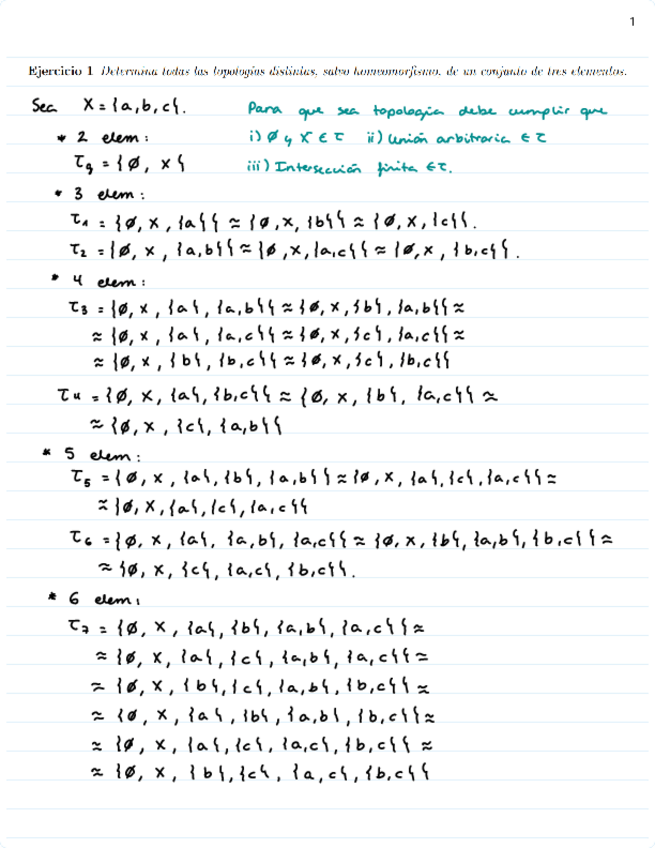 1
Ejercicio 1 Determina todas las topologías distintas, salvo homeomorfismo, de un conjunto de tres elementos.
Sea X = {a,b,c}. Para que sea topología debe cumplir que
* 2 elem: i) ∅ y X ∈ τ ii) Unión arbitraria ∈ τ
τg = {∅, X} iii) Intersección finita ∈ τ.
* 3 elem:
τ1 = {∅, X, {a}} ≈ {∅, X, {b}} ≈ {∅, X, {c}}.
τ2 = {∅, X, {a,b}} ≈ {∅, X, {a,c}} ≈ {∅, X, {b,c}}.
* 4 elem:
τ3 = {∅, X, {a}, {a,b}} ≈ {∅, X, {b}, {a,b}} ≈
≈ {∅, X, {a}, {a,c}} ≈ {∅, X, {c}, {a,c}} ≈
≈ {∅, X, {b}, {b,c}} ≈ {∅, X, {c}, {b,c}}
τ4 = {∅, X, {a}, {b,c}} ≈ {∅, X, {b}, {a,c}} ≈
≈ {∅, X, {c}, {a,b}}
* 5 elem:
τ5 = {∅, X, {a}, {b}, {a,b}} ≈ {∅, X, {a}, {c}, {a,c}} ≈
≈ {∅, X, {a}, {c}, {a,c}}
τ6 = {∅, X, {a}, {a,b}, {a,c}} ≈ {∅, X, {b}, {a,b}, {b,c}} ≈
≈ {∅, X, {c}, {a,c}, {b,c}}.
* 6 elem:
τ7 = {∅, X, {a}, {b}, {a,b}, {a,c}} ≈
≈ {∅, X, {a}, {c}, {a,b}, {a,c}} ≈
≈ {∅, X, {b}, {c}, {a,b}, {b,c}} ≈
≈ {∅, X, {a}, {b}, {a,b}, {b,c}} ≈
≈ {∅, X, {a}, {c}, {a,c}, {b,c}} ≈
≈ {∅, X, {b}, {c}, {a,c}, {b,c}}